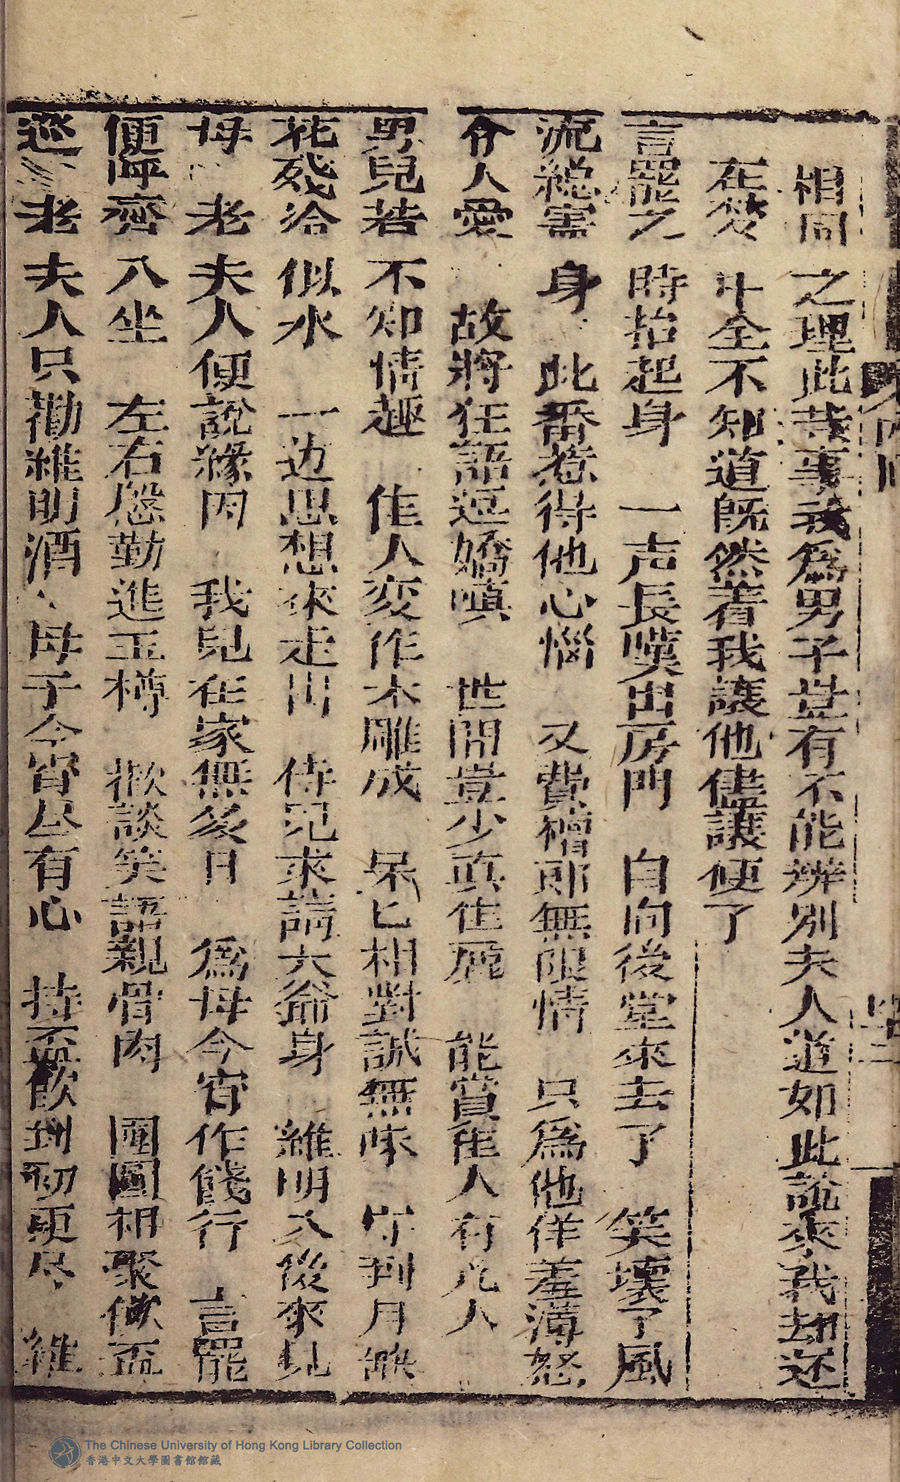 相同之理此等事我為男子豈有不能辨別夫人道如此說來我却还
在夢中全不知道既然着我讓他儘讓便了
言罷之時抬起身 一声長嘆出房門 自向後堂來去了 笑壞了風
流総害身 此番惹得他心惱 又費檀郎無限情 只爲他佯羞薄怒
令人愛 故將狂語逗嬌嗔 世間豈少真佳麗 能賞佳人有几人
男兒若不知情趣 佳人変作木雕成 呆匕相對誠無味 守到月缺
花残洽似水 一边思想來走出 侍兒来請大爺身 維明入後來見
母 老夫人便說緣因 我兒在家無多日 爲母今宵作餞行 言罷
便呼齊八坐 左右慇勤進玉樽 歡談笑語親骨肉 團圓相聚傲盃
巡 老夫人只勸維明酒 母子今宵尽有心 持盃飲到初更尽 維
The Chinese University of Hong Kong Library Collection
香港中文大學圖書館館藏